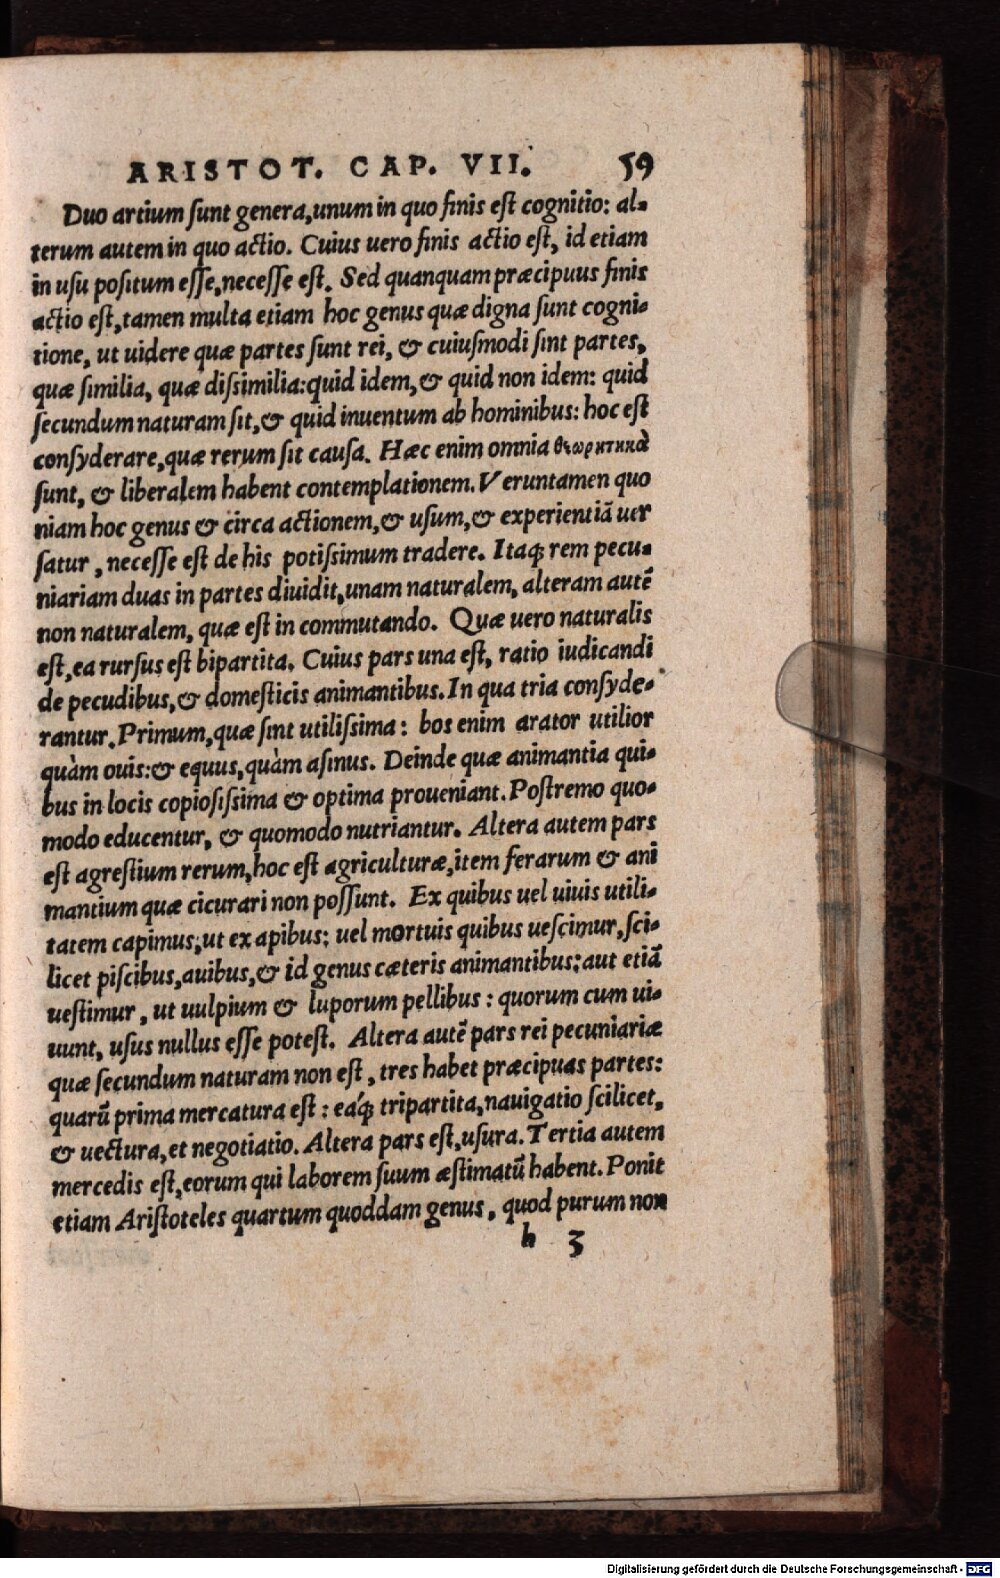 ARISTOT. CAP. VII. 59
Duo artium ſunt genera, unum in quo finis eſt cognitio: al-
terum autem in quo actio. Cuius uero finis actio eſt, id etiam
in uſu poſitum eſſe, neceſſe eſt. Sed quanquam præcipuus finis
actio eſt, tamen multa etiam hoc genus quæ digna ſunt cogni-
tione, ut uidere quæ partes ſunt rei, & cuiuſmodi ſint partes,
quæ ſimilia, quæ diſsimilia: quid idem, & quid non idem: quid
ſecundum naturam ſit, & quid inuentum ab hominibus: hoc eſt
conſyderare, quæ rerum ſit cauſa. Hæc enim omnia θεωρητικὰ
ſunt, & liberalem habent contemplationem. Veruntamen quo
niam hoc genus & circa actionem, & uſum, & experientiã uer
ſatur, neceſſe eſt de his potiſsimum tradere. Itaq; rem pecu-
niariam duas in partes diuidit, unam naturalem, alteram autẽ
non naturalem, quæ eſt in commutando. Quæ uero naturalis
eſt, ea rurſus eſt bipartita. Cuius pars una eſt, ratio iudicandi
de pecudibus, & domeſticis animantibus. In qua tria conſyde-
rantur. Primum, quæ ſint utiliſsima: bos enim arator utilior
quàm ouis: & equus, quàm aſinus. Deinde quæ animantia qui-
bus in locis copioſiſsima & optima proueniant. Poſtremo quo-
modo educentur, & quomodo nutriantur. Altera autem pars
eſt agreſtium rerum, hoc eſt agriculturæ, item ferarum & ani
mantium quæ cicurari non poſſunt. Ex quibus uel uiuis utili-
tatem capimus, ut ex apibus: uel mortuis quibus ueſcimur, ſci-
licet piſcibus, auibus, & id genus cæteris animantibus: aut etiã
ueſtimur, ut uulpium & luporum pellibus: quorum cum ui-
uunt, uſus nullus eſſe poteſt. Altera autẽ pars rei pecuniariæ
quæ ſecundum naturam non eſt, tres habet præcipuas partes:
quarũ prima mercatura eſt: eáq; tripartita, nauigatio ſcilicet,
& uectura, et negotiatio. Altera pars eſt, uſura. Tertia autem
mercedis eſt, eorum qui laborem ſuum æſtimatũ habent. Ponit
etiam Ariſtoteles quartum quoddam genus, quod purum non
h 3
Digitalisierung gefördert durch die Deutsche Forschungsgemeinschaft - DFG